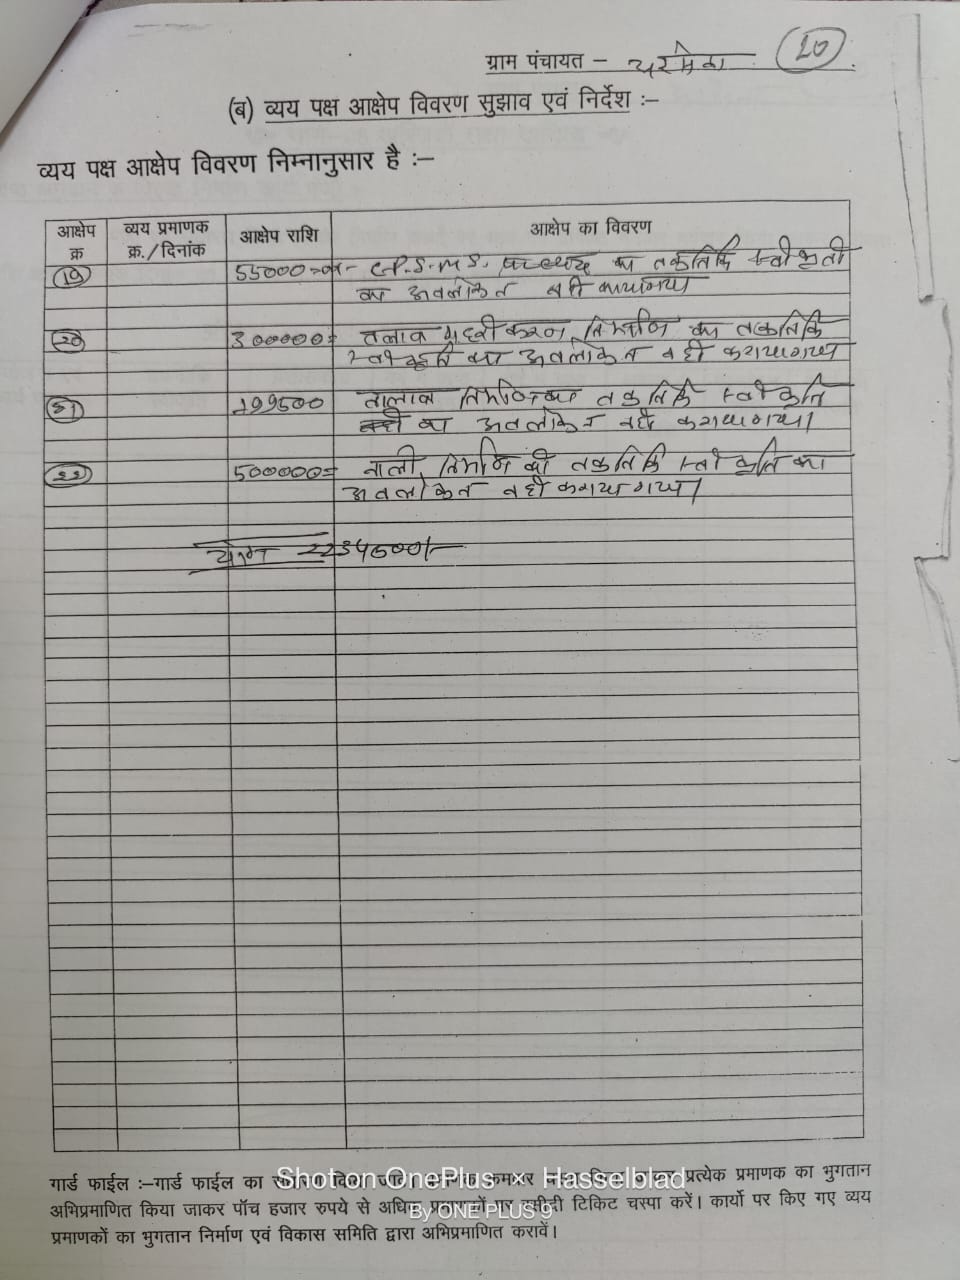 ग्राम पंचायत – 20
(ब) व्यय पक्ष आक्षेप विवरण सुझाव एवं निर्देश :–
व्यय पक्ष आक्षेप विवरण निम्नानुसार है :–
आक्षेप क्र व्यय प्रमाणक क्र./दिनांक आक्षेप राशि आक्षेप का विवरण
55000=00 का तकनिकि स्वीकृती
का अवलोकन नही कराया गया
20 300000= तलाब गहरीकरण निर्माण का तकनिकि
स्वीकृति का अवलोकन नही कराया गया
199500 तालाब निर्माण का तकनिकि स्वीकृति
का अवलोकन नही कराया गया।
22 500000= नाली निर्माण की तकनिकि स्वीकृति का
अवलोकन नही कराया गया।
योग 2234500/-
गार्ड फाईल :–गार्ड फाईल का प्रत्येक प्रमाणक का भुगतान
अभिप्रमाणित किया जाकर पॉच हजार रुपये से अधिक टिकिट चस्पा करें। कार्यो पर किए गए व्यय
प्रमाणकों का भुगतान निर्माण एवं विकास समिति द्वारा अभिप्रमाणित करावें।
Shot on OnePlus × Hasselblad
By ONE PLUS 9